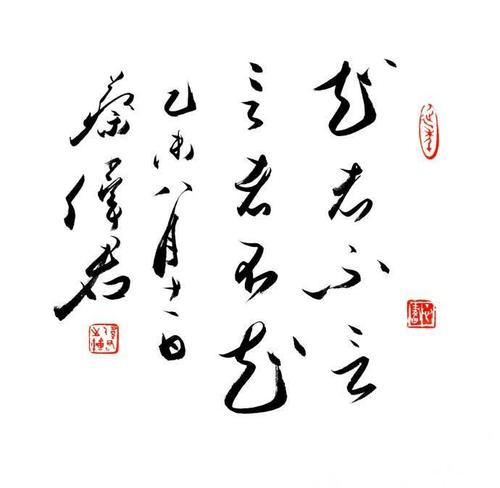 知者不言
言者不知
乙未八月十一日
蔡君